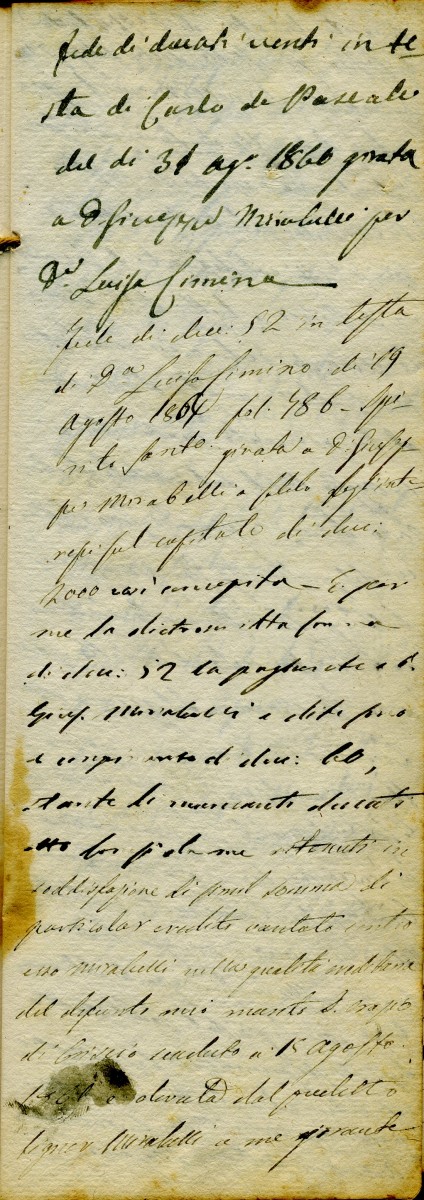 fede di ducati venti in te-
sta di Carlo de Pascale
del di 31 ag.º 1860 girata
a D. Giuseppe Mirabelli per
D.ª Luisa Cimino
Fede di duc: 52 in testa
di D.ª Luisa Cimino di 19
Agosto 1861 fol. 486 - Spi-
rito Santo girata a D. Giusep-
pe Mirabelli a saldo degl'inte-
ressi sul capitale di duc:
2000 così concepita - E per
me la dietroscritta somma
di duc: 52 la pagherete a D.
Gius. Mirabelli e dite per
a compimento di duc: 60,
stante li mancanti ducati
otto da me ritenuti in
soddisfazione di simil somma di
particolar credito vantato contro
esso Mirabelli nella qualità
del defunto mio marito D.
di scaduto a 15 agosto
e dovuta dal predetto
signor Mirabelli a me girante